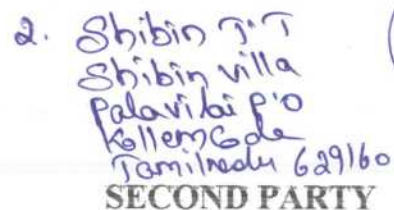 2. Shibin T.T
Shibin villa
Palavilai P.O
KollemCode
Tamilnadu 629160
SECOND PARTY